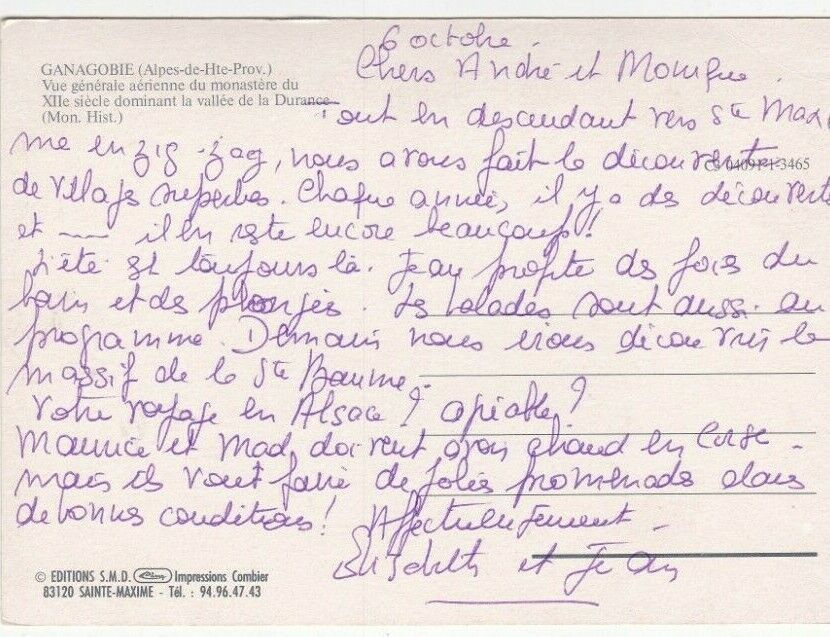 6 octobre.
Chers André et Monique.
GANAGOBIE (Alpes-de-Hte-Prov.)
Vue générale aérienne du monastère du
XIIe siècle dominant la vallée de la Durance
(Mon. Hist.)
Tout en descendant vers Ste Maxi
me en zig-zag, nous avons fait la découverte
CS 04091-1-3465
de villages superbes. Chaque année, il y a des découvertes
et — il en reste encore beaucoup!
L'été est toujours là. Jean profite des joies du
bain et des plongées. Les balades sont aussi au
programme. Demain nous irons découvrir le
massif de la Ste Baume.
Votre voyage en Alsace? agréable?
Maurice et Mad. doivent avoir chaud en Corse -
mais ils vont faire de jolies promenades dans
de bonnes conditions! Affectueusement -
Elisabeth et Jean
© EDITIONS S.M.D. Impressions Combier
83120 SAINTE-MAXIME - Tél. : 94.96.47.43